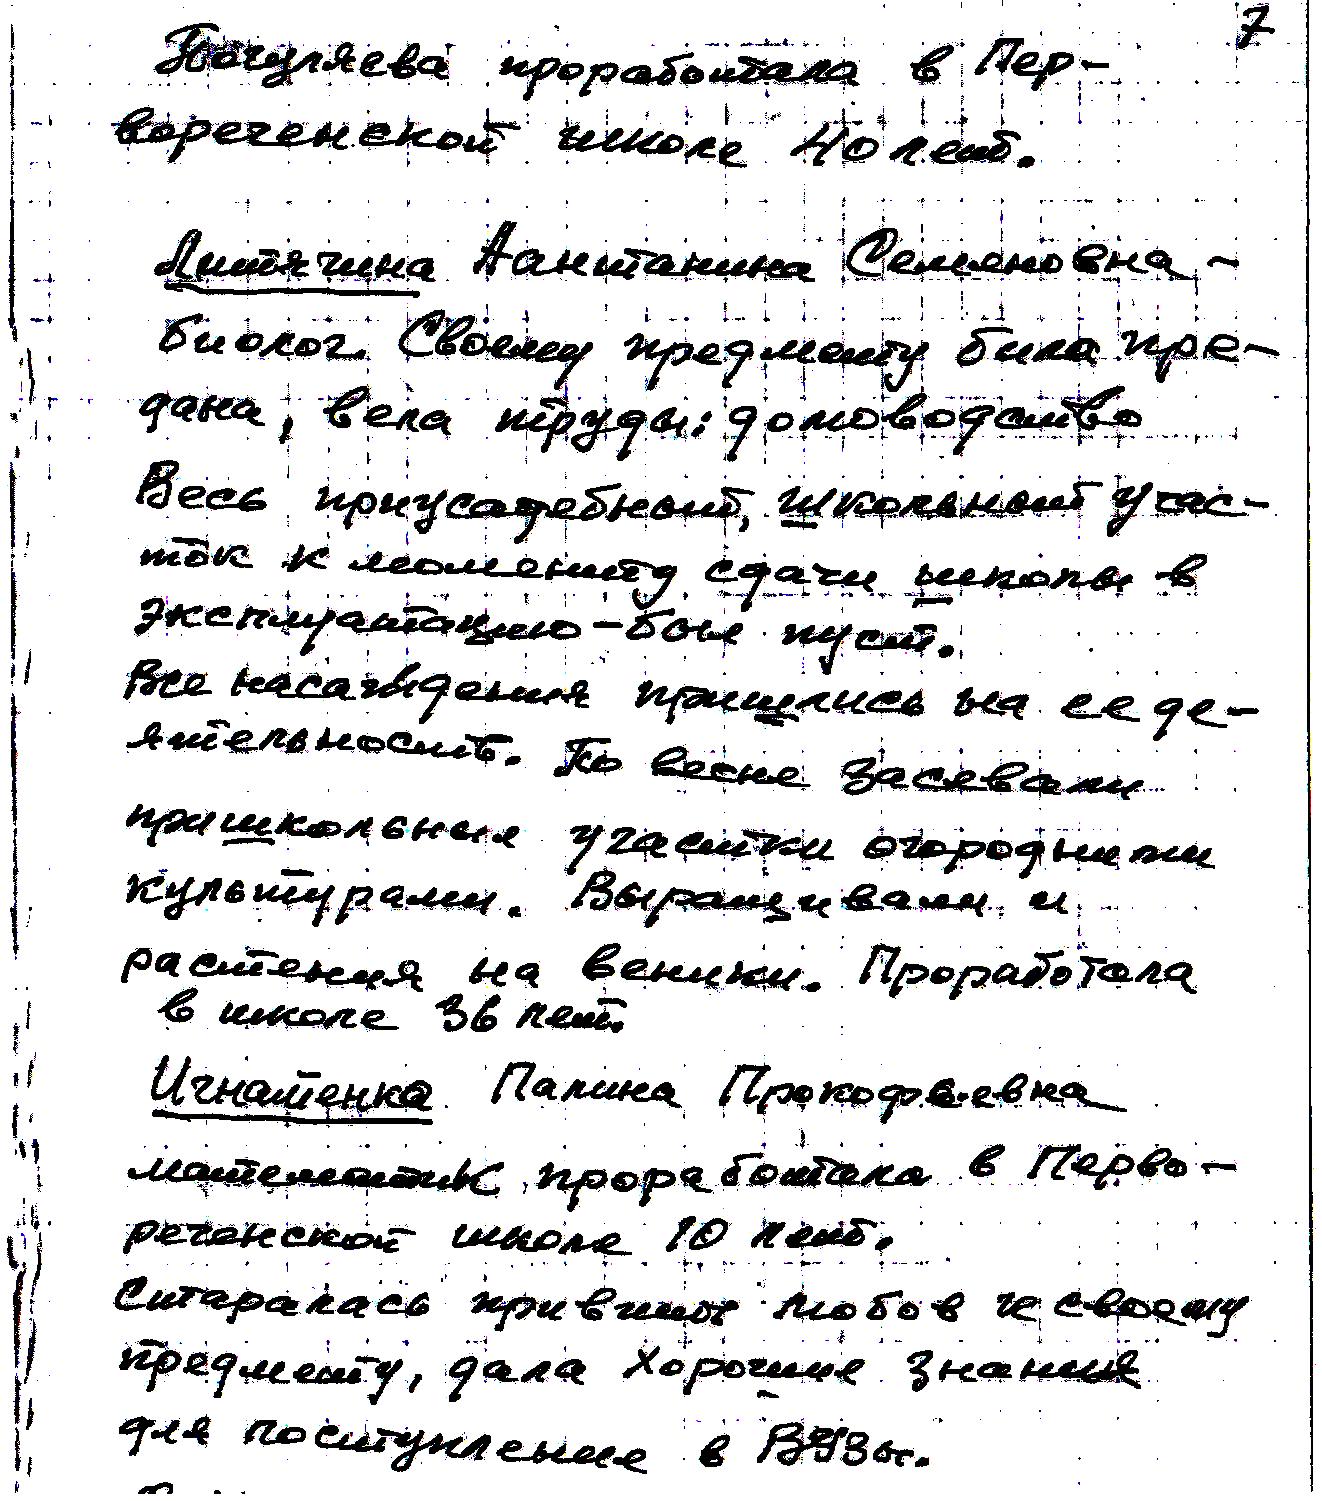 7
Почуляева проработала в Пер-
вореченской школе 40 лет.
Литячина Аантанина Семяновна -
биолог. Своему предмету была пре-
дана, вела труды: домоводство
Весь приусадебный, школьный учас-
ток к моменту сдачи школы в
эксплуатацию - был пуст.
Все насаждения пришлись на ее де-
ятельность. По весне засевали
пришкольные участки огородными
культурами. Выращивали и
растения на веники. Проработала
в школе 36 лет.
Игнатенко Палина Прокофьевна
математик проработала в Перво-
реченской школе 10 лет.
Старалась привить любов к своему
предмету, дала хорошие знания
для поступление в ВУЗы.